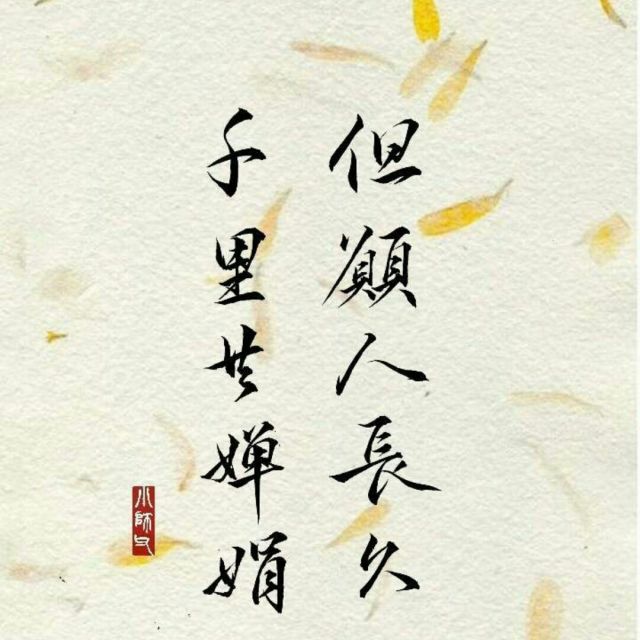 但願人長久
千里共嬋娟
小師父